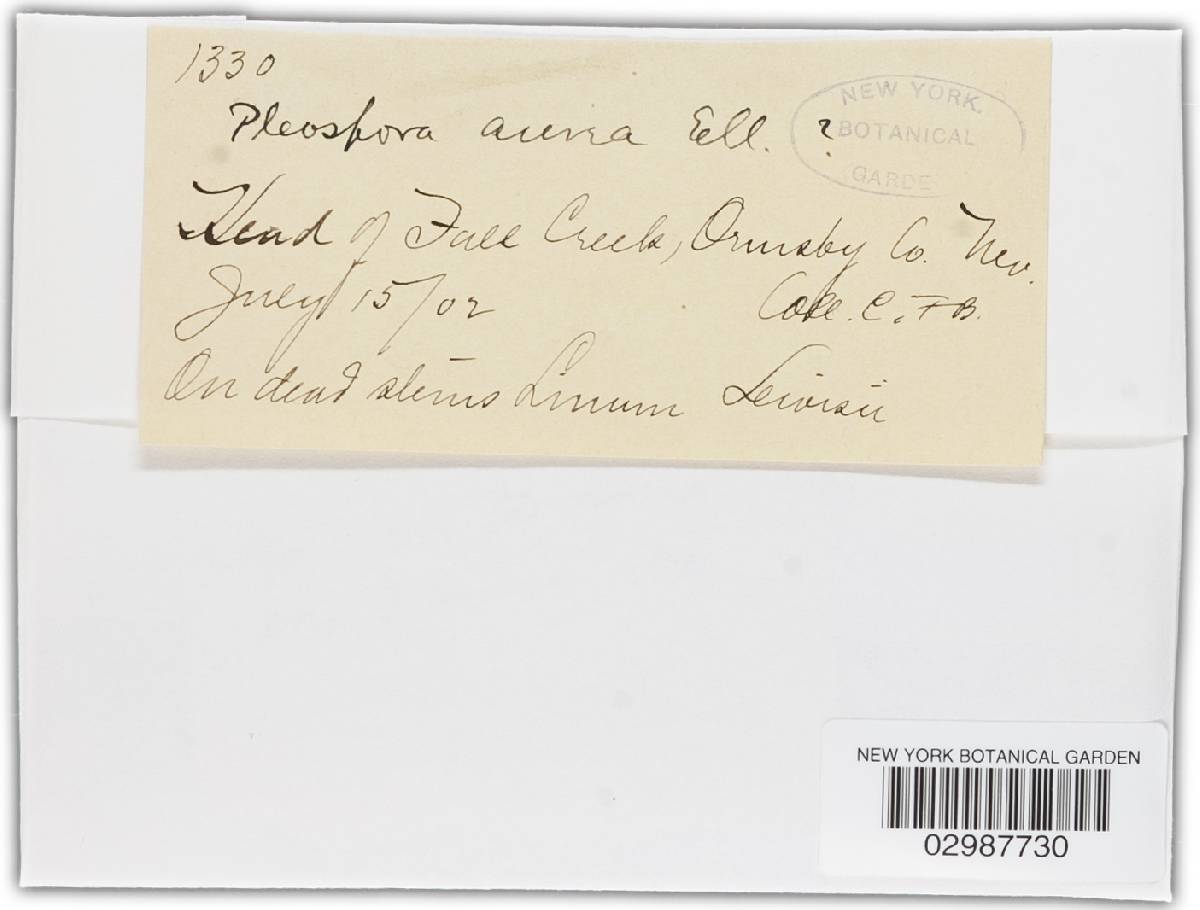 1330
Pleospora aurea Ell. ?
NEW YORK
BOTANICAL
GARDE
Head of Fall Creek, Ormsby Co. Nev.
July 15/02 Coll. C. F. B.
On dead stems Linum Lewisii
NEW YORK BOTANICAL GARDEN
02987730